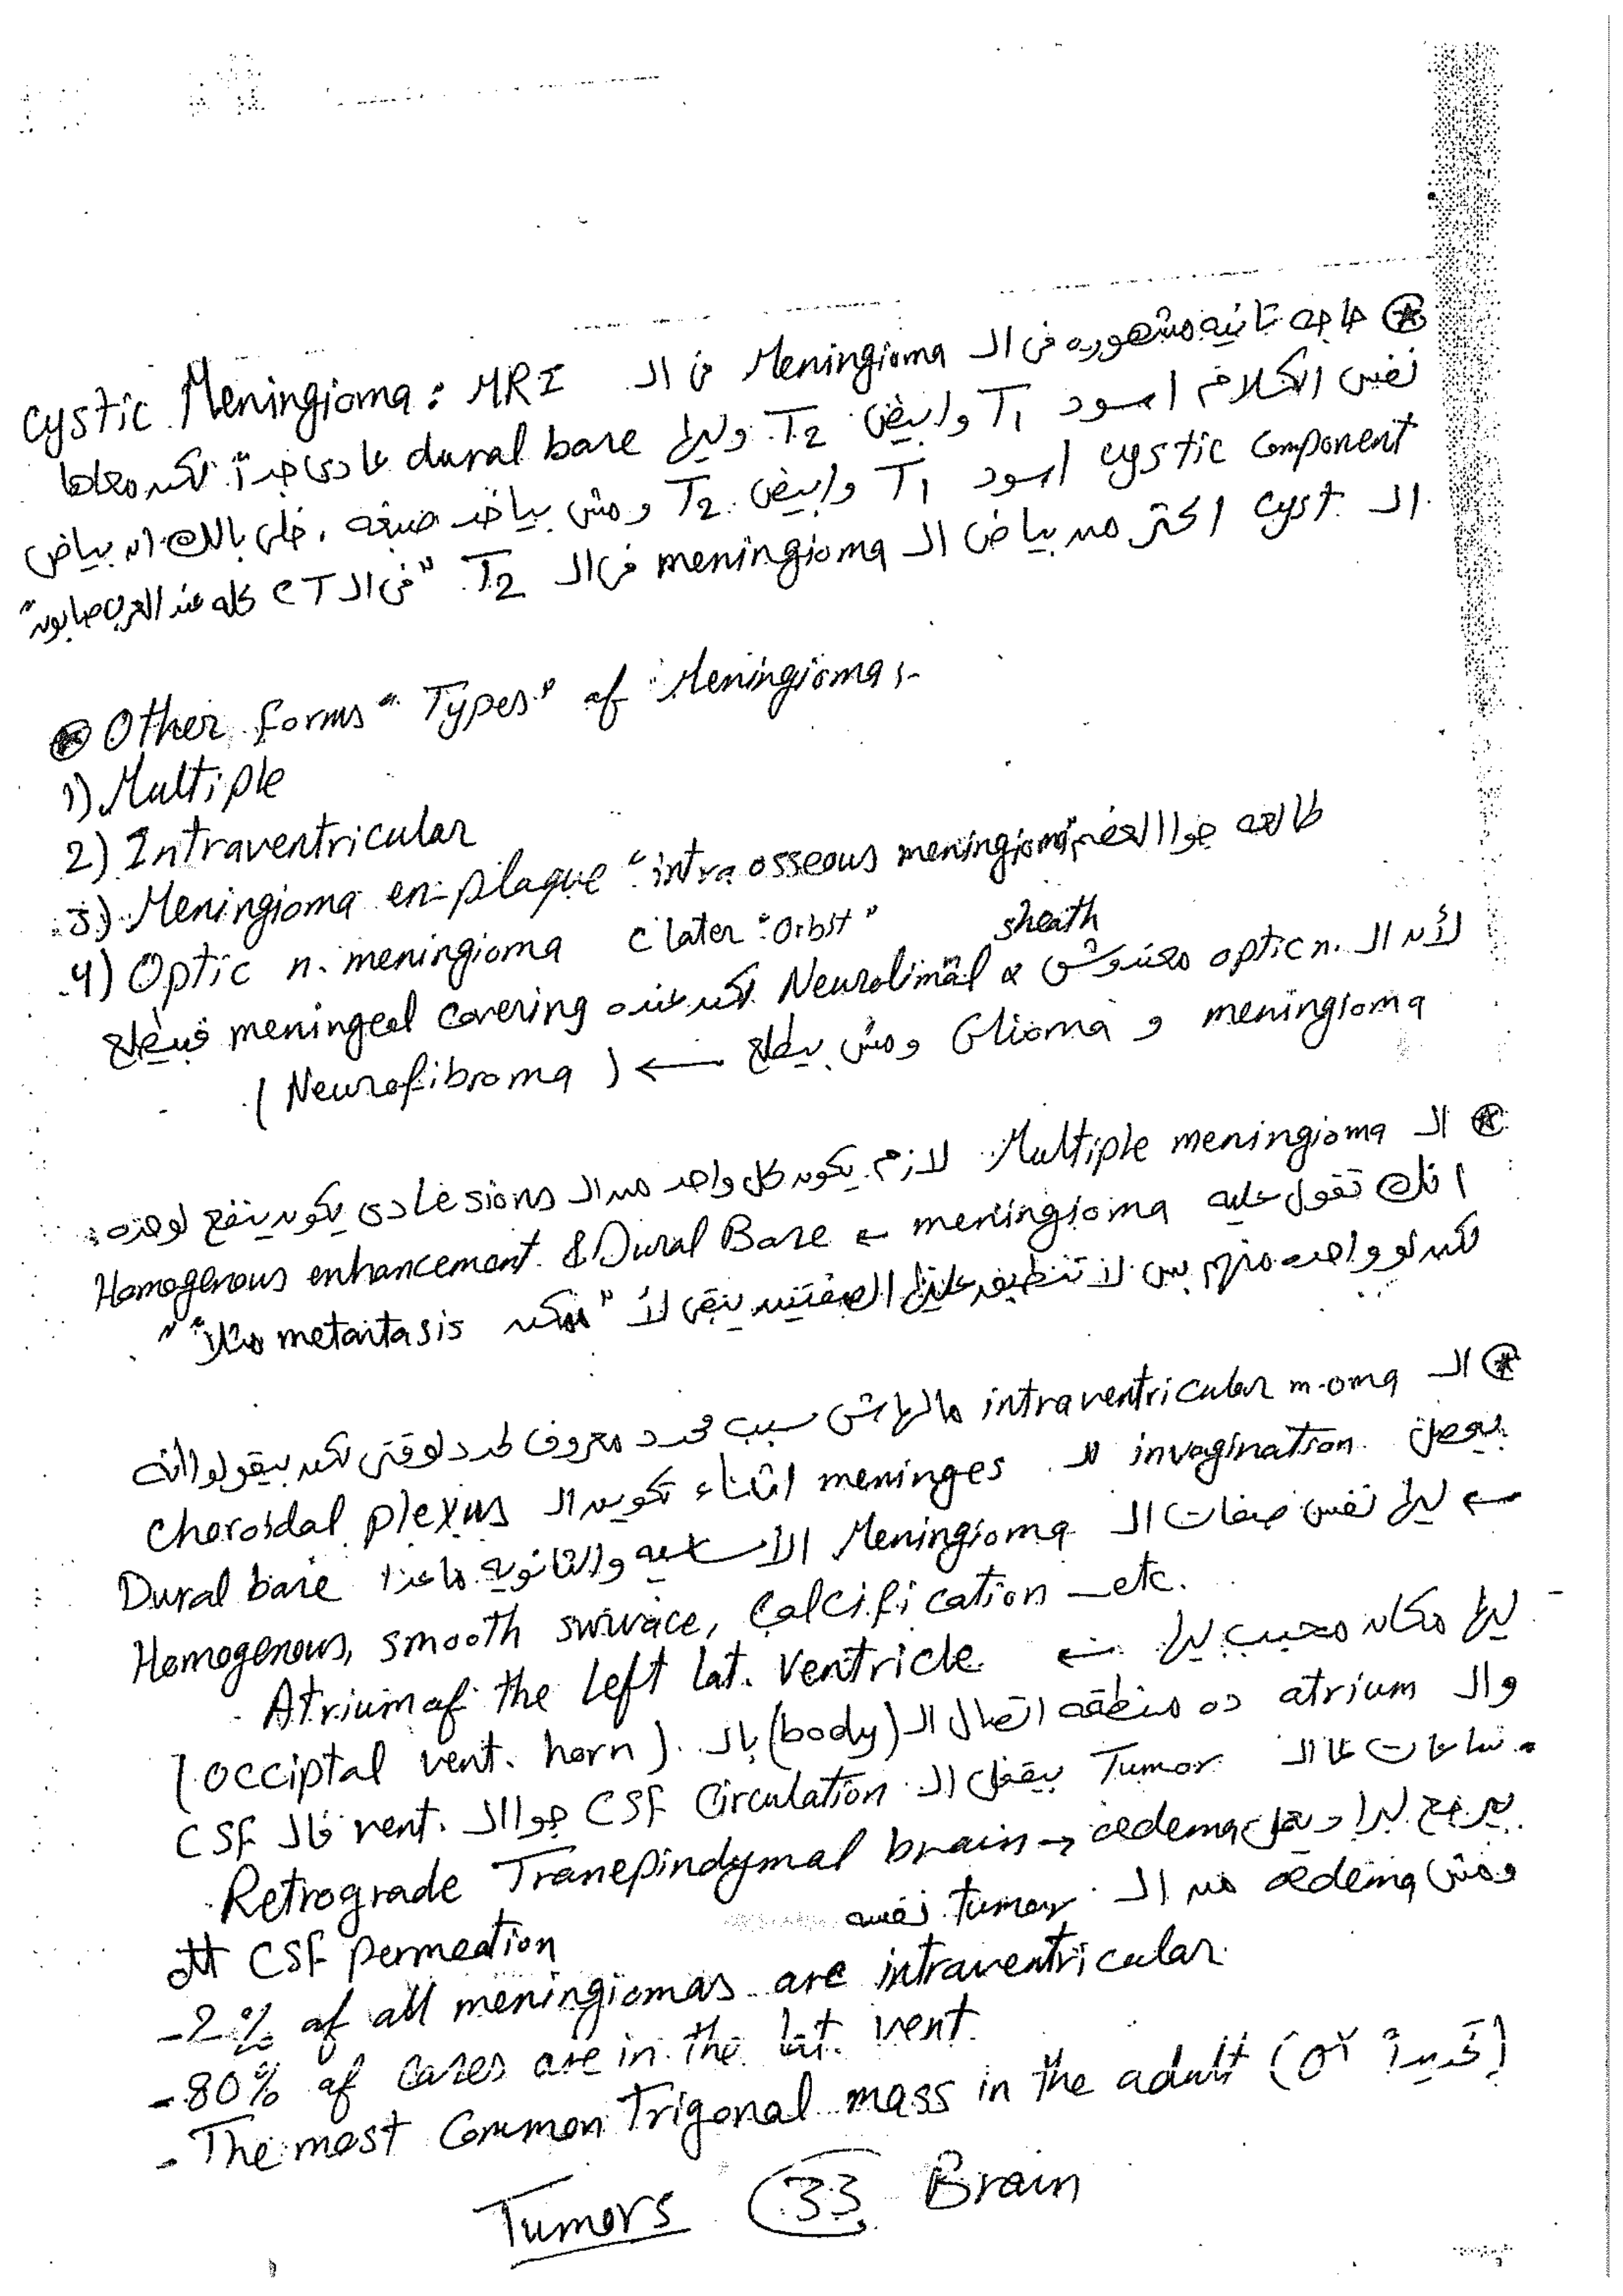 ⍟ حاجه تانيه مشهوره فى الـ Meningioma فى الـ Cystic Meningioma : MRI
نفس الكلام اسود T1 وابيض T2 وليها dural base عادى جداً لكن معاها
cystic component اسود T1 وابيض T2 ومش بياخد صبغه ، خلى بالك ان بياض
الـ cyst اكتر من بياض الـ meningioma فى الـ T2 "فى الـ CT كله عند العرب صابون"
⍟ Other forms "Types" of Meningioma :-
1) Multiple
2) Intraventricular
3) Meningioma en-plaque "intraosseous meningioma" طالعه جوا العضم
4) Optic n. meningioma C later "Orbit"
لأن الـ optic n. معندوش Neurolimal sheath لكن عنده meningeal covering فبيطلع
meningioma و Glioma ومش بيطلع ← (Neurofibroma)
⍟ الـ Multiple meningioma لازم يكون كل واحد من الـ lesions عادى يكون ينفع لوحده
انك تقول عليه meningioma ← Homogenous enhancement & Dural Base
لكن لو واحده منهم بس لا تنطبق عليها الصفتين يبقى لأ "ممكن metastasis مثلاً"
⍟ الـ intraventricular m-oma مالهاش سبب محدد معروف لحد دلوقتى لكن بيقولوا انه
بيحصل invagination للـ meninges اثناء تكوين الـ Choroidal plexus
← ليها نفس صفات الـ Meningioma الأساسيه والثانويه ماعدا Dural base
Homogenous, smooth survace, Calcification - etc.
ليها مكان محبب ليها ← Atrium of the left lat. ventricle
والـ atrium ده منطقه اتصال الـ (body) بالـ (occiptal vent. horn)
• ساعات الـ Tumor بيقفل الـ CSF Circulation جوا الـ vent. فالـ CSF
يرجع لورا ويعمل Retrograde Tranepindymal brain → oedema
ومش oedema من الـ tumor نفسه
CSF permeation
- 2% of all meningiomas are intraventricular
- 80% of cases are in the lat. vent.
- The most Common Trigonal mass in the adult (تحديداً ♀)
Tumors 33 Brain